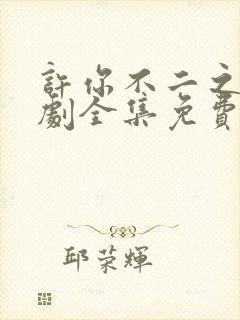 許你不二之
劇全集免費
邱榮輝